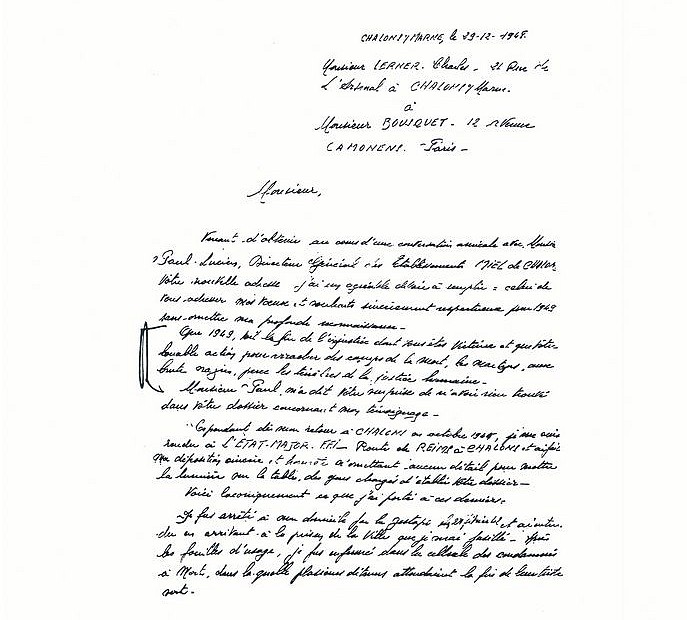 CHALONS/MARNE, le 29-12-1948.
Monsieur LERNER. Charles - 21 Rue de
L'Arsenal à CHALONS/Marne.
à
Monsieur BOUSQUET - 12 Avenue
CAMOHENS. - Paris -
Monsieur,
Venant d'obtenir au cours d'une conversation amicale avec Monsieur
Paul-Lucien, Directeur Général des Etablissements MIEL de CHALONS
Votre nouvelle adresse - j'ai un agréable devoir à remplir = celui de
vous adresser mes voeux et souhaits sincèrement respectueux pour 1949
sans omettre ma profonde reconnaissance -
Que 1949, soit la fin de l'injustice dont vous êtes Victime et que votre
louable action pour arracher des camps de la Mort, les martyrs, aux
brutes nazies, perce les ténèbres de la justice humaine -
Monsieur Paul, m'a dit Votre surprise de n'avoir rien trouvé
dans Votre dossier concernant mon témoignage -
Cependant dès mon retour à CHALONS en octobre 1944, je me suis
rendu à L'ETAT-MAJOR. FFI - Route de REIMS à CHALONS et ai fait
ma déposition sincère et honnête n'omettant aucun détail pour mettre
la lumière sur la table, des gens chargés d'établir Votre dossier -
Voici laconiquement ce que j'ai porté à ces derniers.
Je fus arrêté à mon domicile par la gestapo et
en arrivant à la prison de la Ville que je serai fusillé - Après
les fouilles d'usage, je fus enfermé dans la cellule des condamnés
à Mort, dans laquelle plusieurs détenus attendaient la fin de leur triste
sort -